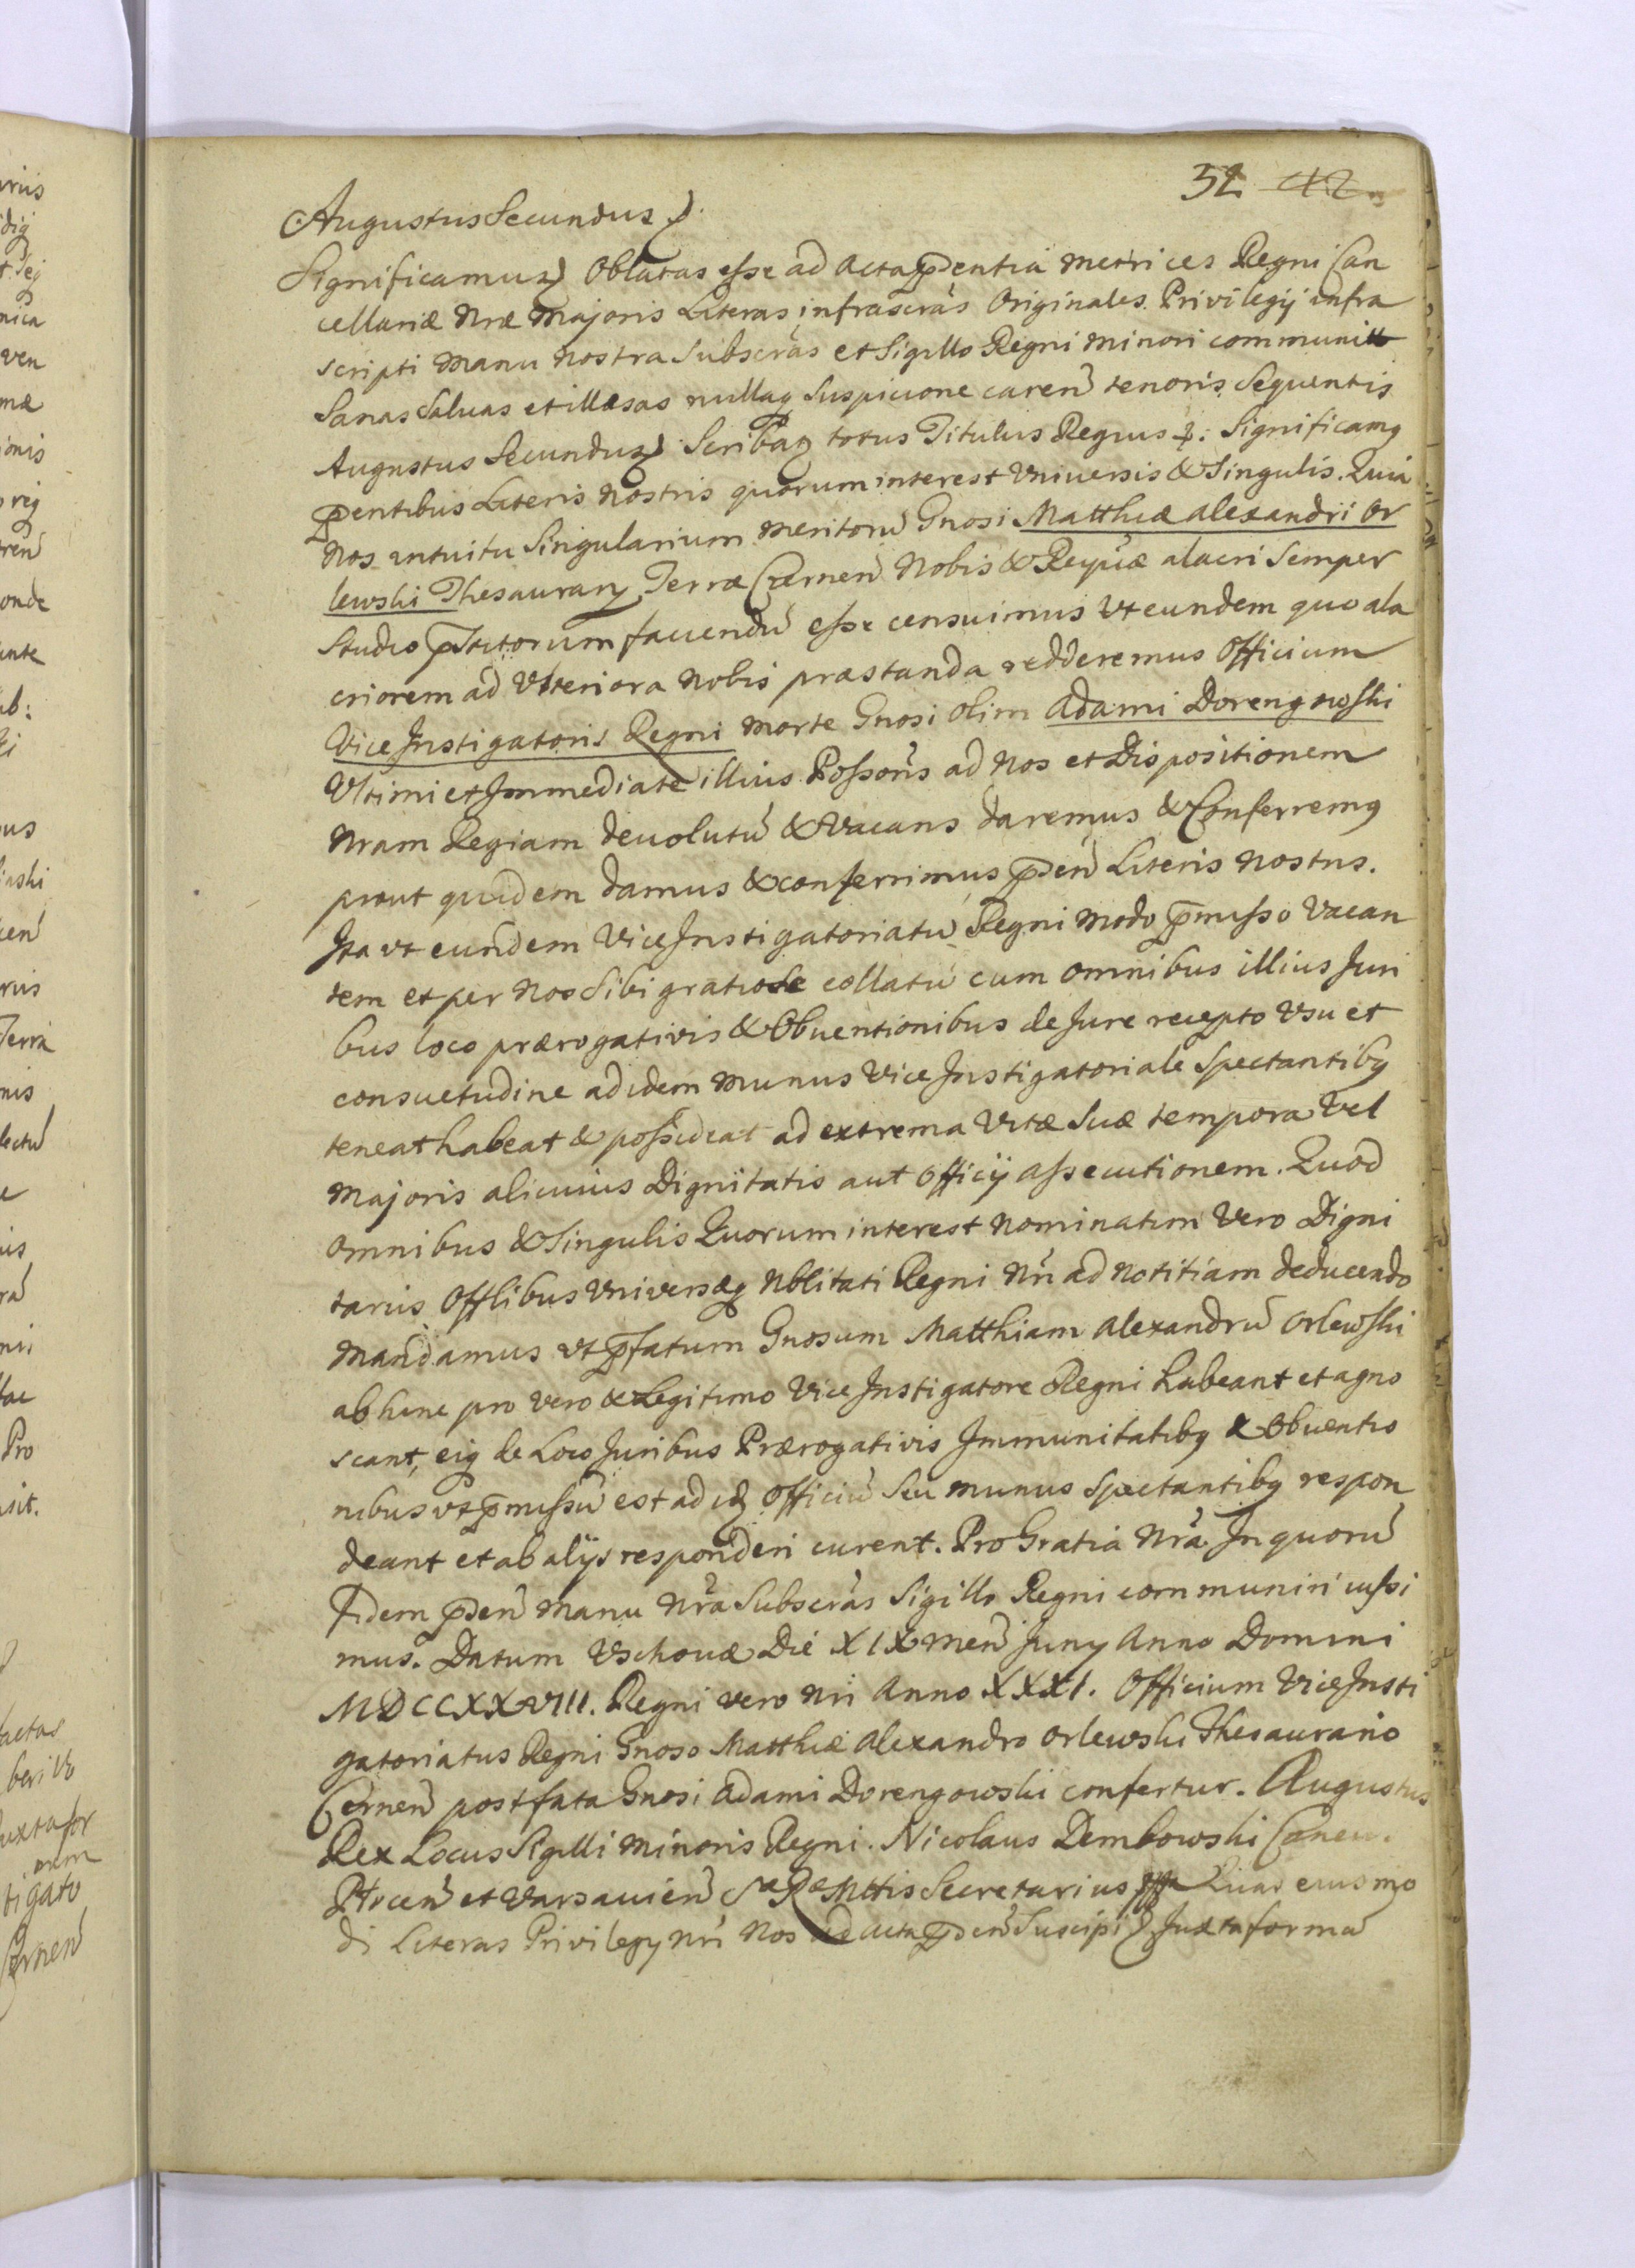 52 42
Augustus Secundus
Significamus Oblatas esse ad acta p̄dentia metrices Regni Can
cellariæ Nræ Majoris Literas infrascrās Originales Privilegij infra
scripti manu nostra Subscrās et Sigillo Regni minori communitt
Sanas Saluas et illæsas nullaq Suspicione careñ tenoris Sequentis
Augustus Secundus Scribaz totus Titulus Regius Significamq
p̄entibus Literis Nostris quorum interest Vniuersis & Singulis. Quia
Nos intuitu Singularium meritorū Gnosi Matthiæ alexandri Or
lewski Thesaurarij Terræ Czerneñ Nobis & Reipŭæ alacri Semper
Studio p̄stitorum fauendū esse censuimus Vt eundem quo ala
criorem ad Vlteriora Nobis præstanda redderemus Officium
Vice Instigatoris Regni morte Gnosi olim Adami Dorengowski
Vltimi et Immediate illius Possoris ad Nos et Dispositionem
Nram Regiam deuolutū & Vacans daremus & Conferremq
prout quidem damus & conferrimus p̄deñ Literis nostris.
Ita vt eundem Vice Instigatoriatū Regni modo p̄misso Vacan
tem et per Nos Sibi gratiose collatū cum omnibus illius Juri
bus loco prærogativis & Obuentionibus de Jure recepto Vsu et
consuetudine ad idem munus Vice Instigatoriale Spectantibq
teneat habeat & possideat ad extrema Vitæ Suæ tempora Vel
Majoris alicuius Dignitatis aut Officij assecutionem. Quod
omnibus & Singulis Quorum interest nominatim Vero Digni
tariis Offlibus Vniversæq Nblitati Regni Nri ad Notitiam deducendo
mandamus vt p̄fatum Gnosum Matthiam Alexandrū Orlewski
ab hinc pro Vero & Legitimo Vice Instigatore Regni habeant et agno
scant, eiq de Loco Juribus Prærogativis Immunitatibq & Obuentio
nibus vt p̄missū est ad id Officiū Seu munus Spectantibq respon
deant et ab alijs responderi curent. Pro Gratia Nrā. In quorū
Fidem p̄deñ manu Nrā Subscrās Sigillo Regni communiri iussi
mus. Datum Vschouæ Die XIX meñ Junij Anno Domini
MDCCXXVIII. Regni vero Nri Anno XXXI. Officium Vice Insti
gatoriatus Regni Gnoso Matthiæ Alexandro Orlewski Thesaurario
Czerneñ post fata Gnosi Adami Dorengowski confertur. Augustus
Rex Locus Sigilli Minoris Regni. Nicolaus Dembowski Caneu.
Ptoceñ et Varsauieñ Sæ Ræ Mttis Secretarius Quas eiusmo
di Literas Privilegij Nri Nos ad acta p̄deñ Suscipi Juxta formā